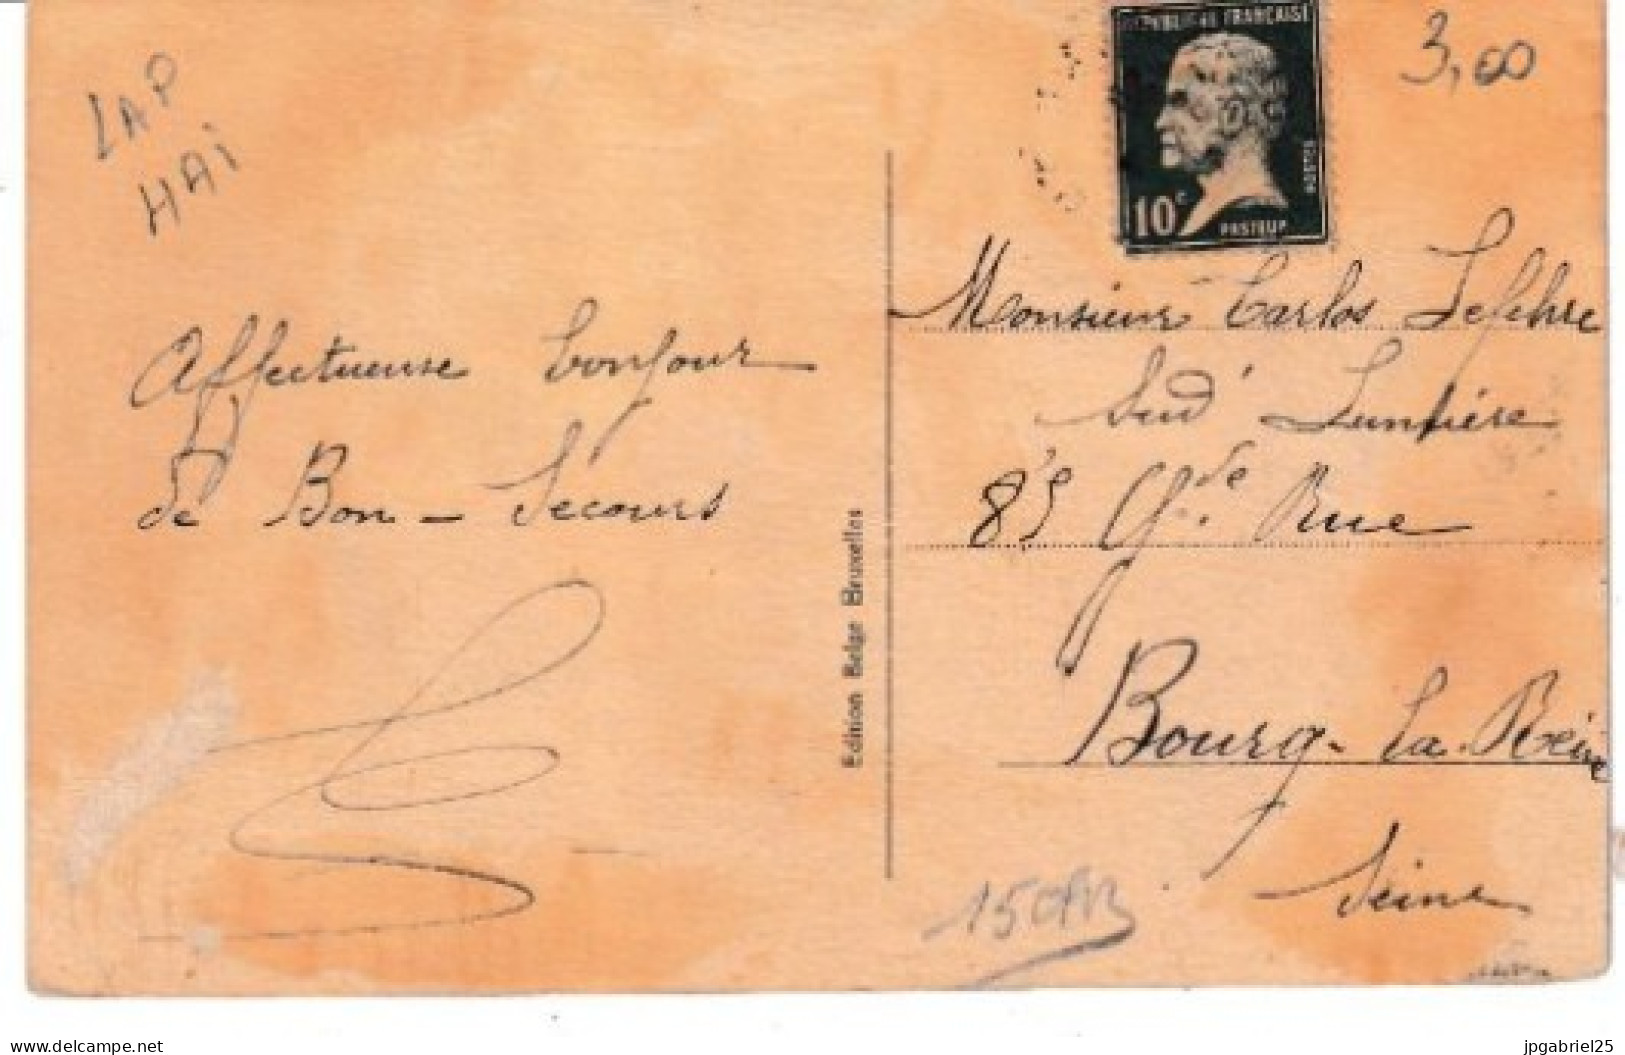 LAP
HAI
3,00
REPUBLIQUE FRANÇAISE
POSTES
10c
PASTEUR
Affectueuse bonjour
de Bon-Secours
Edition Belge Bruxelles
Monsieur Carlos Lefebvre
Sud Lumière
85 Gde Rue
Bourg-la-Reine
Seine
www.delcampe.net
jpgabriel25